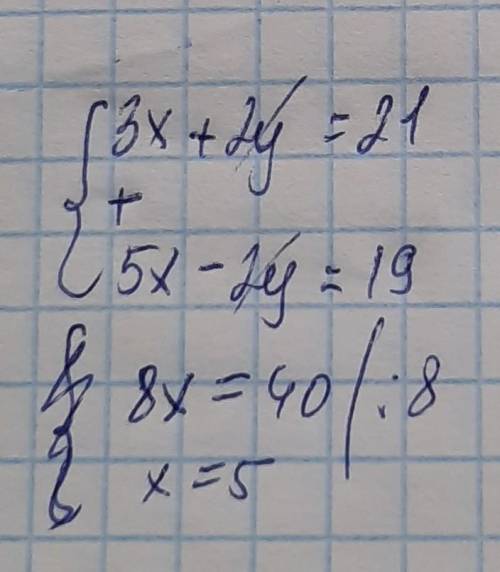 3x + 2y = 21
+
5x - 2y = 19
8x = 40 / : 8
x = 5